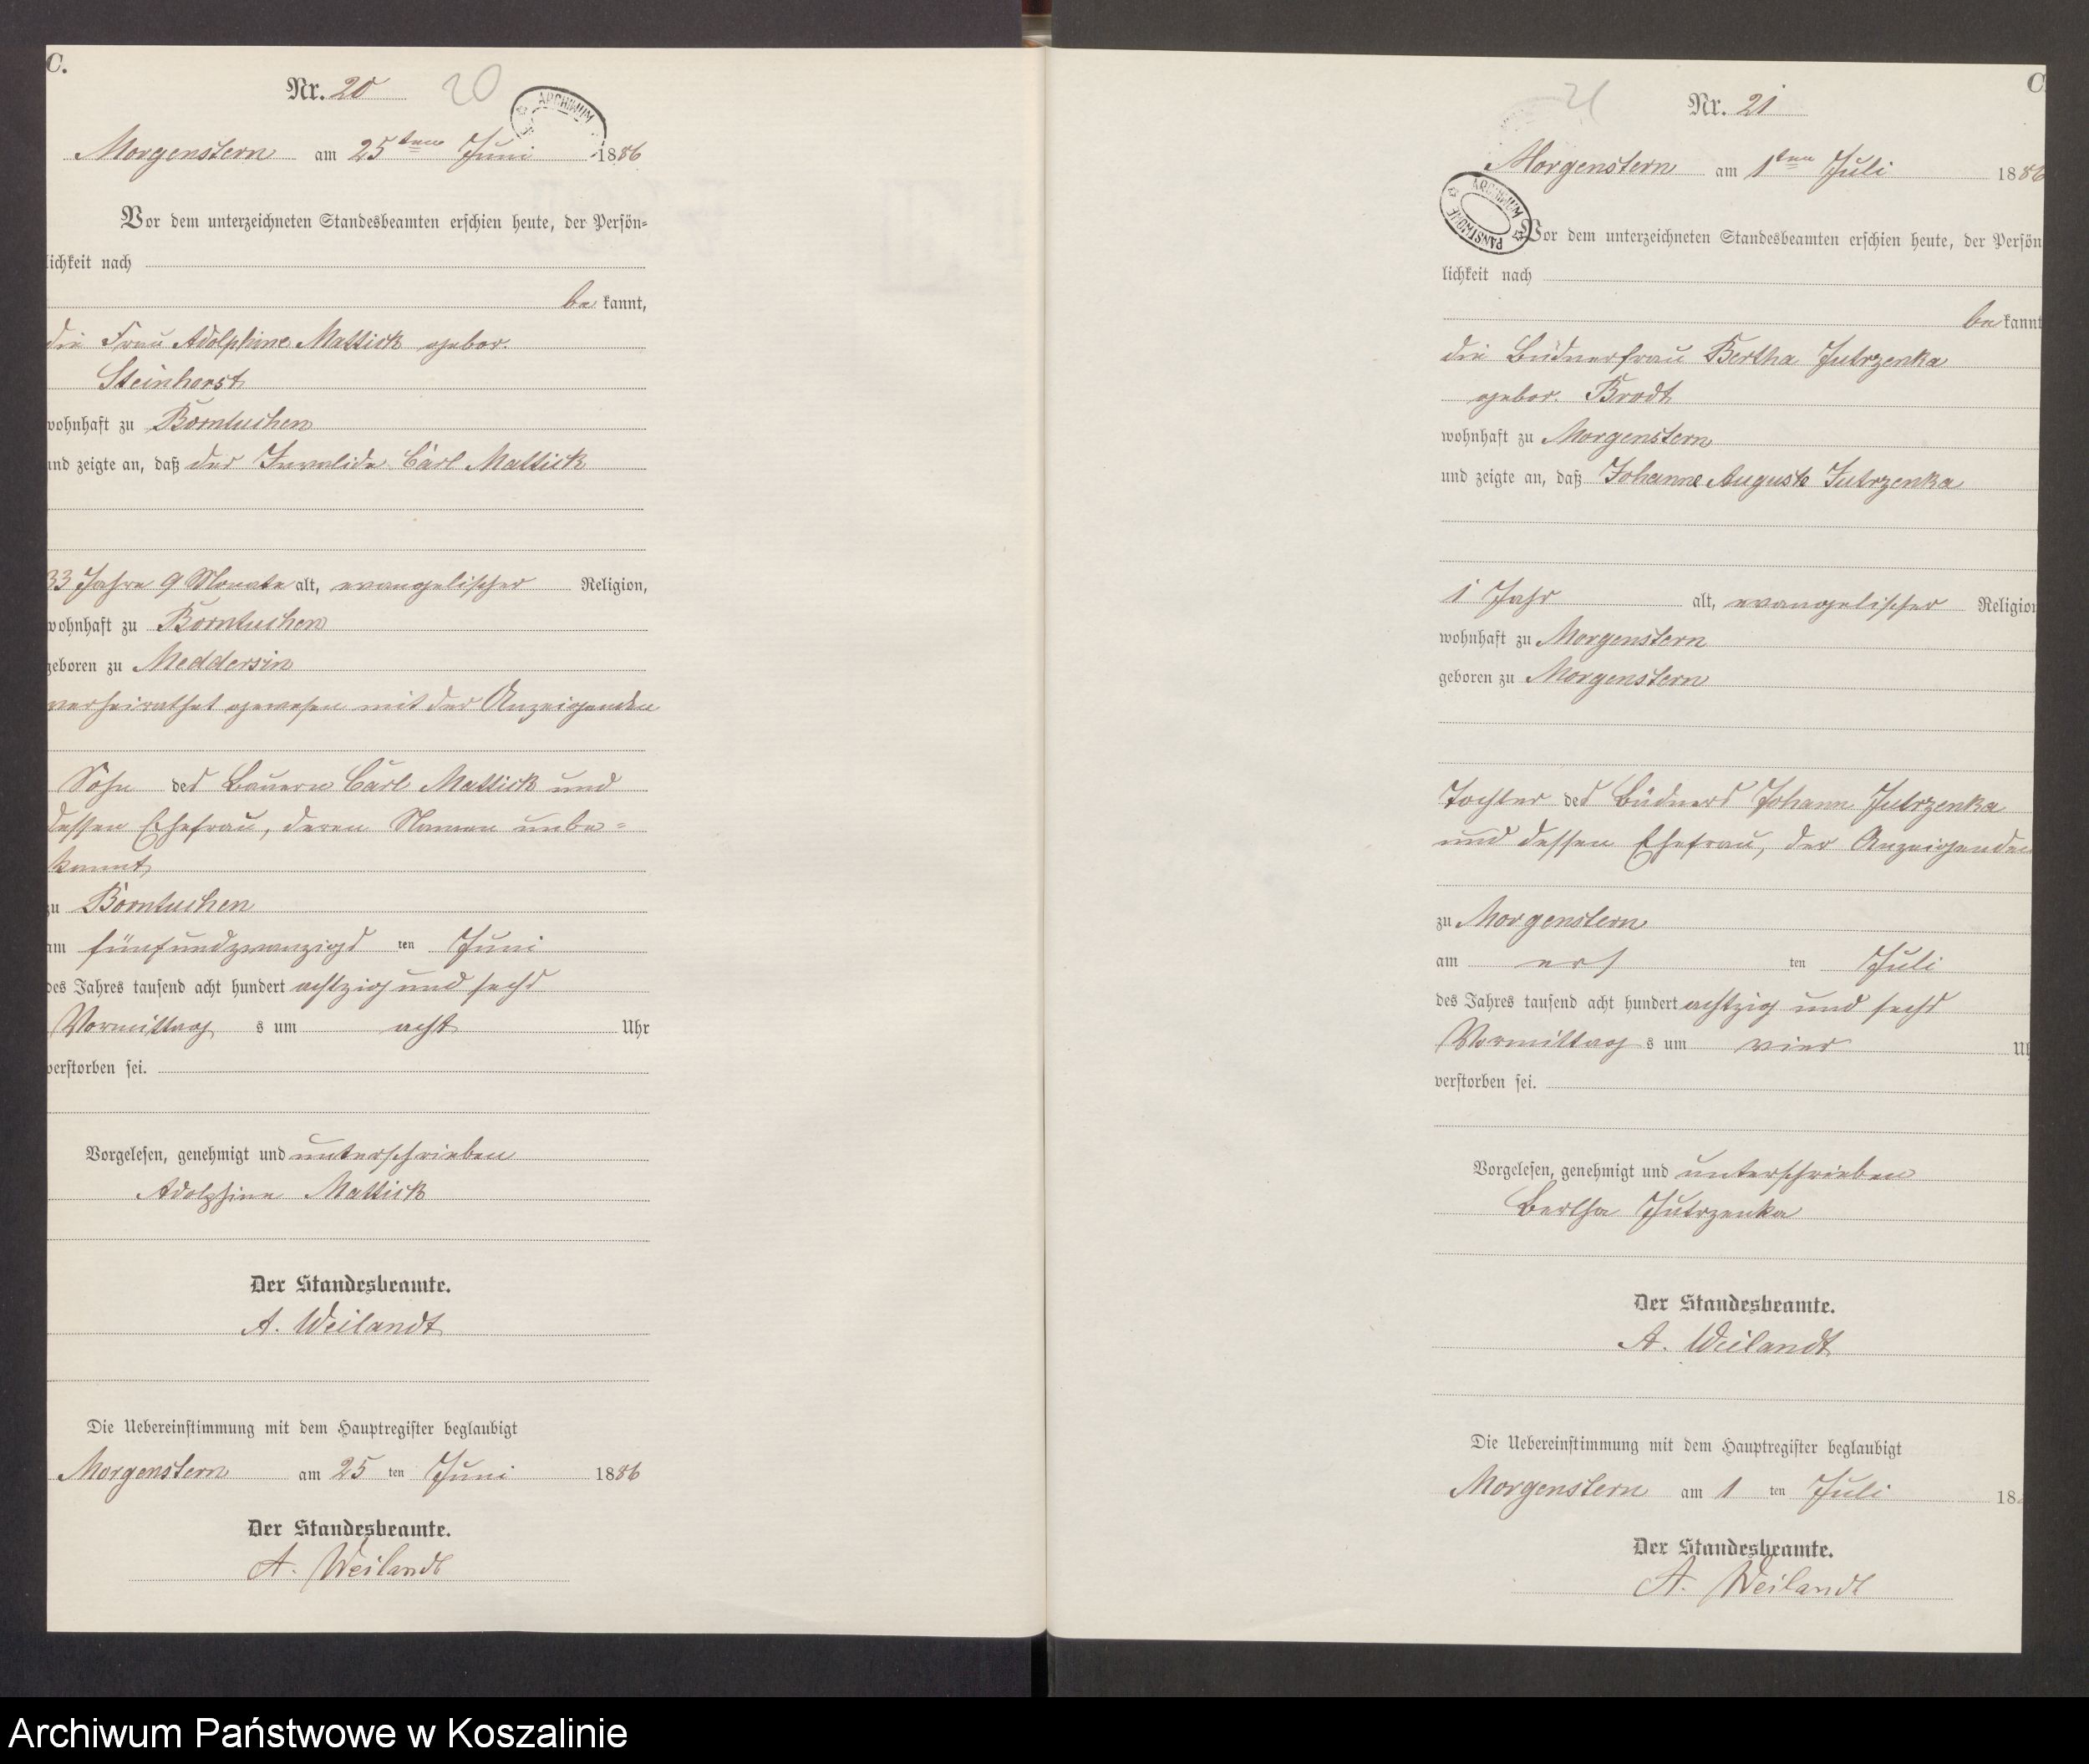 C.
Nr. 20
20
ARCHIWUM
Morgenstern am 25ten Juni 1886
Vor dem unterzeichneten Standesbeamten erschien heute, der Persön-
lichkeit nach
be kannt,
die Frau Adolphine Mattick gebor.
Steinhorst
wohnhaft zu Borntuchen
und zeigte an, daß der Invalide Carl Mattick
33 Jahre 9 Monate alt, evangelischer Religion,
wohnhaft zu Borntuchen
geboren zu Meddersin
verheirathet gewesen mit der Anzeigenden
Sohn des Bauern Carl Mattick und
dessen Ehefrau, deren Namen unbe-
kannt
zu Borntuchen
am fünfundzwanzigs ten Juni
des Jahres tausend acht hundert achtzig und sechs
Vormittag s um acht Uhr
verstorben sei.
Vorgelesen, genehmigt und unterschrieben
Adolphine Mattick
Der Standesbeamte.
A. Weilandt
Die Uebereinstimmung mit dem Hauptregister beglaubigt
Morgenstern am 25 ten Juni 1886
Der Standesbeamte.
A. Weilandt
C
Nr. 21
21
Morgenstern am 1ten Juli 1886
ARCHIWUM PAŃSTWOWE
Vor dem unterzeichneten Standesbeamten erschien heute, der Persön
lichkeit nach
be kannt
die Büdnerfrau Bertha Jutrzenka
gebor. Brodt
wohnhaft zu Morgenstern
und zeigte an, daß Johanne Auguste Jutrzenka
1 Jahr alt, evangelischer Religion
wohnhaft zu Morgenstern
geboren zu Morgenstern
Tochter des Büdners Johann Jutrzenka
und dessen Ehefrau, der Anzeigenden
zu Morgenstern
am ers ten Juli
des Jahres tausend acht hundert achtzig und sechs
Vormittag s um vier Uh
verstorben sei.
Vorgelesen, genehmigt und unterschrieben
Bertha Jutrzenka
Der Standesbeamte.
A. Weilandt
Die Uebereinstimmung mit dem Hauptregister beglaubigt
Morgenstern am 1 ten Juli 18
Der Standesbeamte.
A. Weilandt
Archiwum Państwowe w Koszalinie